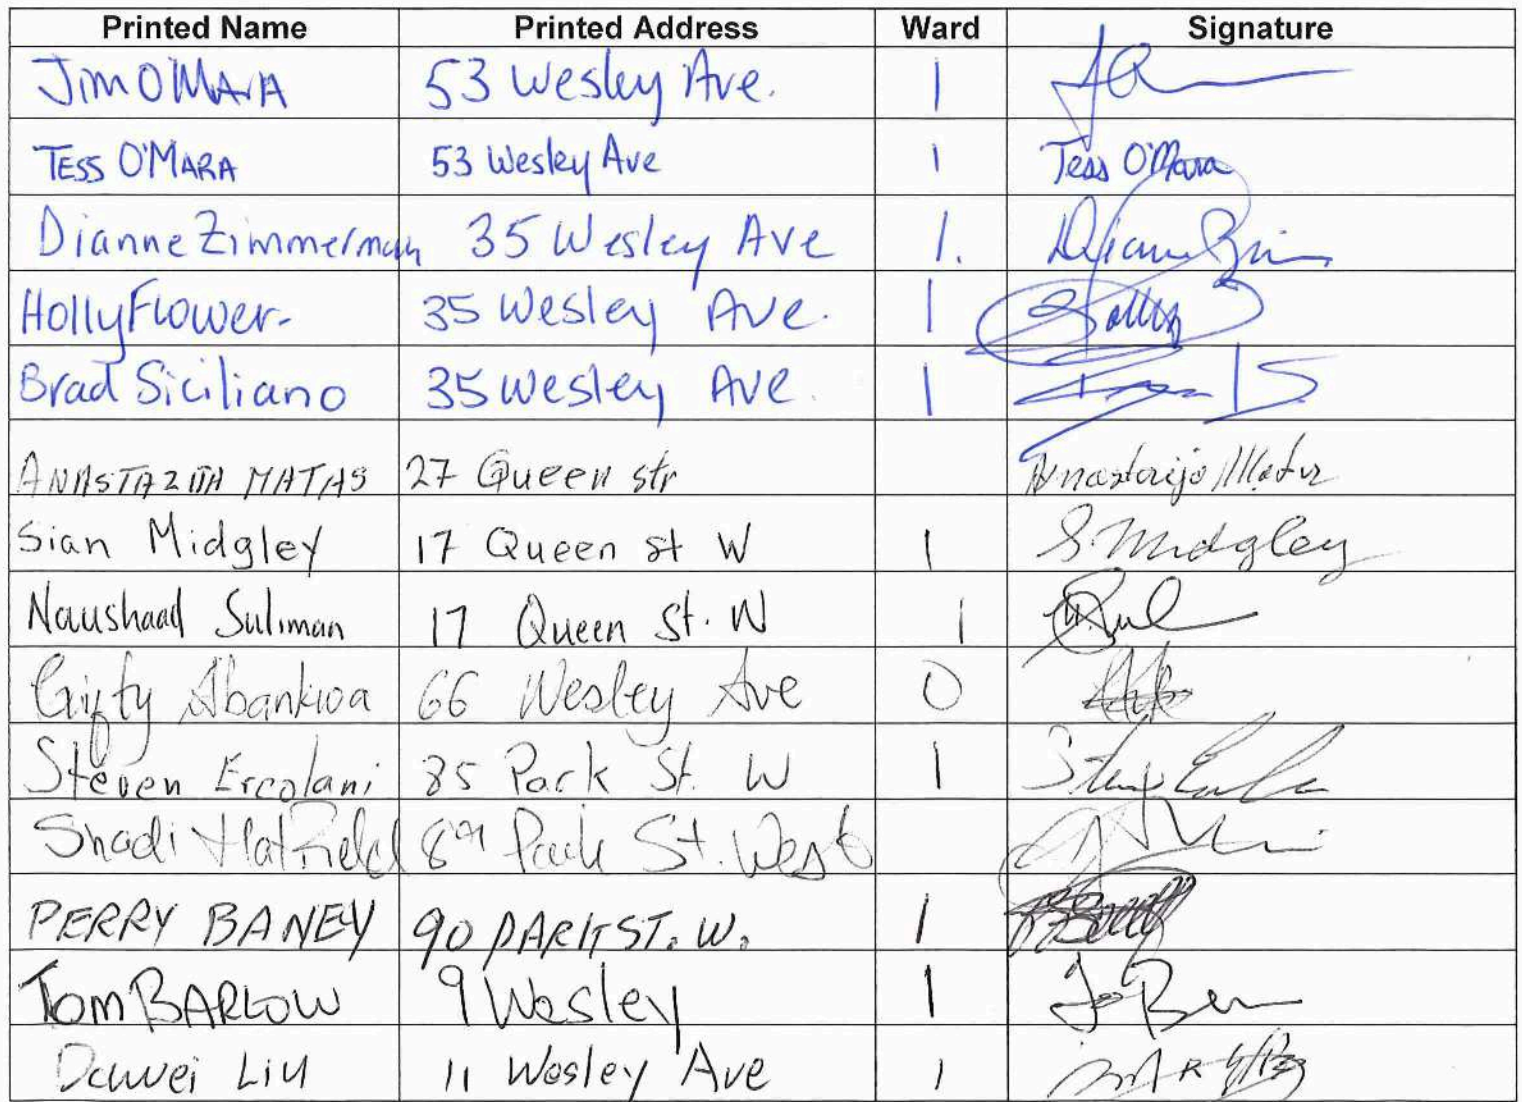 Printed Name Printed Address Ward Signature
Jim O'MARA 53 Wesley Ave. 1
TESS O'MARA 53 Wesley Ave 1 Tess O'Mara
Dianne Zimmerman 35 Wesley Ave 1.
Holly Flower 35 Wesley Ave. 1
Brad Siciliano 35 Wesley Ave. 1
ANASTAZIJA MATAS 27 Queen str
Sian Midgley 17 Queen st W 1 S. Midgley
Naushaad Suliman 17 Queen St. W 1
Gifty Abankwa 66 Wesley Ave 0
Steven Ercolani 85 Park St. W 1
Shadi Hatfield Park St. West
PERRY BANEY 90 PARK ST. W. 1
Tom BARLOW 9 Wesley 1
Dawei Liu 11 Wesley Ave 1